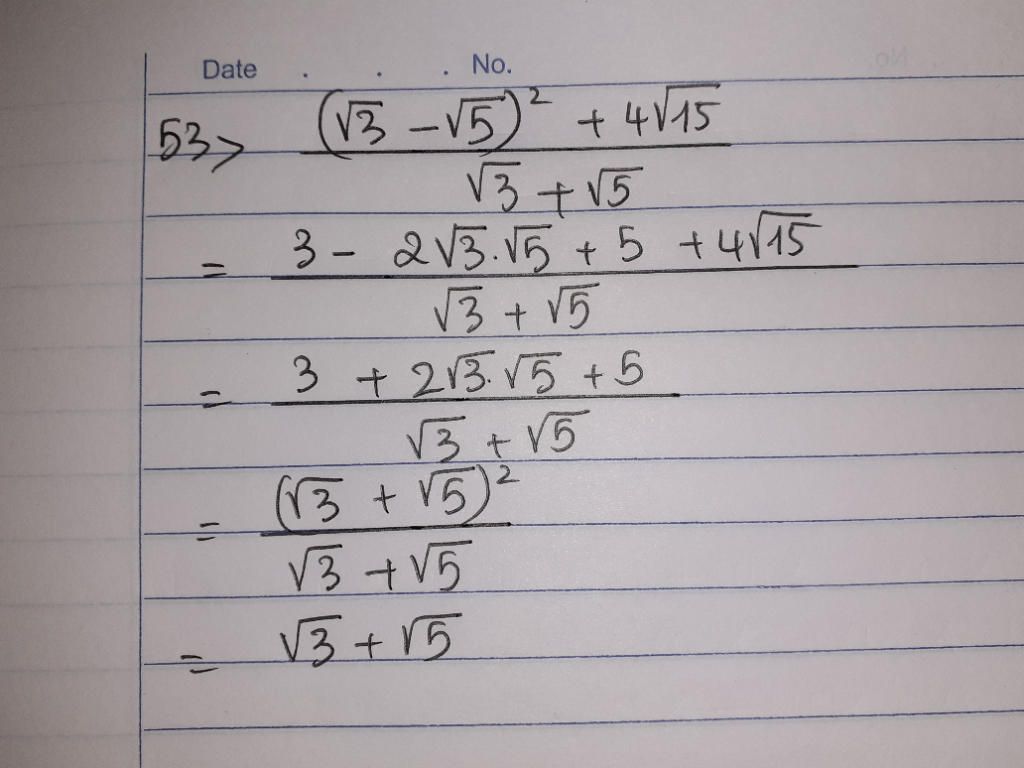 Date . . . No.
53> (√3 - √5)² + 4√15
√3 + √5
= 3 - 2√3.√5 + 5 + 4√15
√3 + √5
= 3 + 2√3.√5 + 5
√3 + √5
= (√3 + √5)²
√3 + √5
= √3 + √5